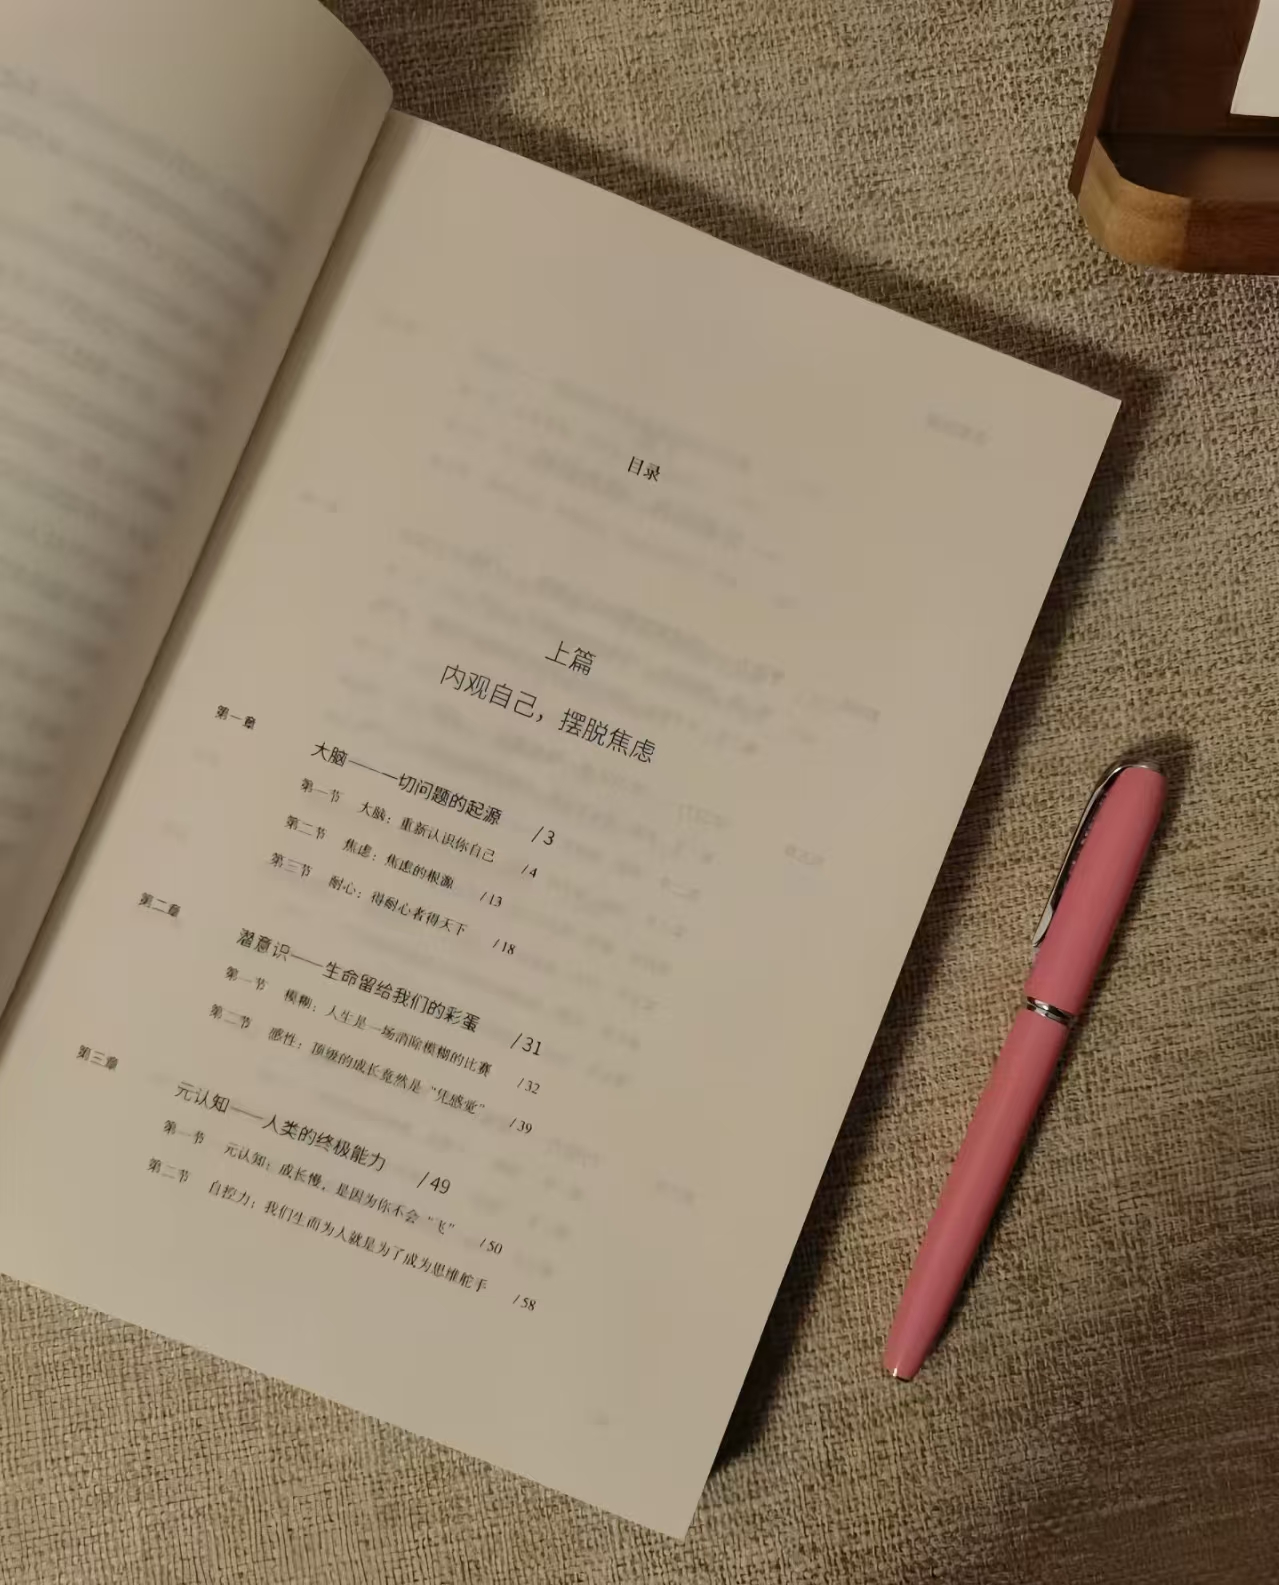 目录
上篇
内观自己，摆脱焦虑
第一章
大脑——一切问题的起源 /3
第一节 大脑：重新认识你自己 /4
第二节 焦虑：焦虑的根源 /13
第三节 耐心：得耐心者得天下 /18
第二章
潜意识——生命留给我们的彩蛋 /31
第一节 模糊：人生是一场消除模糊的比赛 /32
第二节 感性：顶级的成长竟然是“凭感觉” /39
第三章
元认知——人类的终极能力 /49
第一节 元认知：成长慢，是因为你不会“飞” /50
第二节 自控力：我们生而为人就是为了成为思维舵手 /58